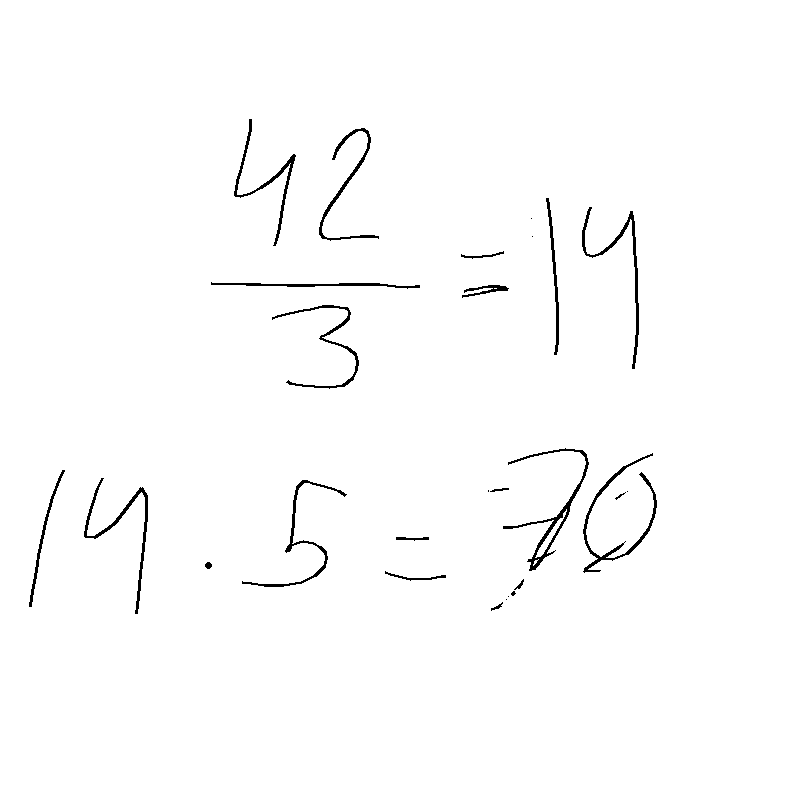 42/3 = 14
14 · 5 = 70